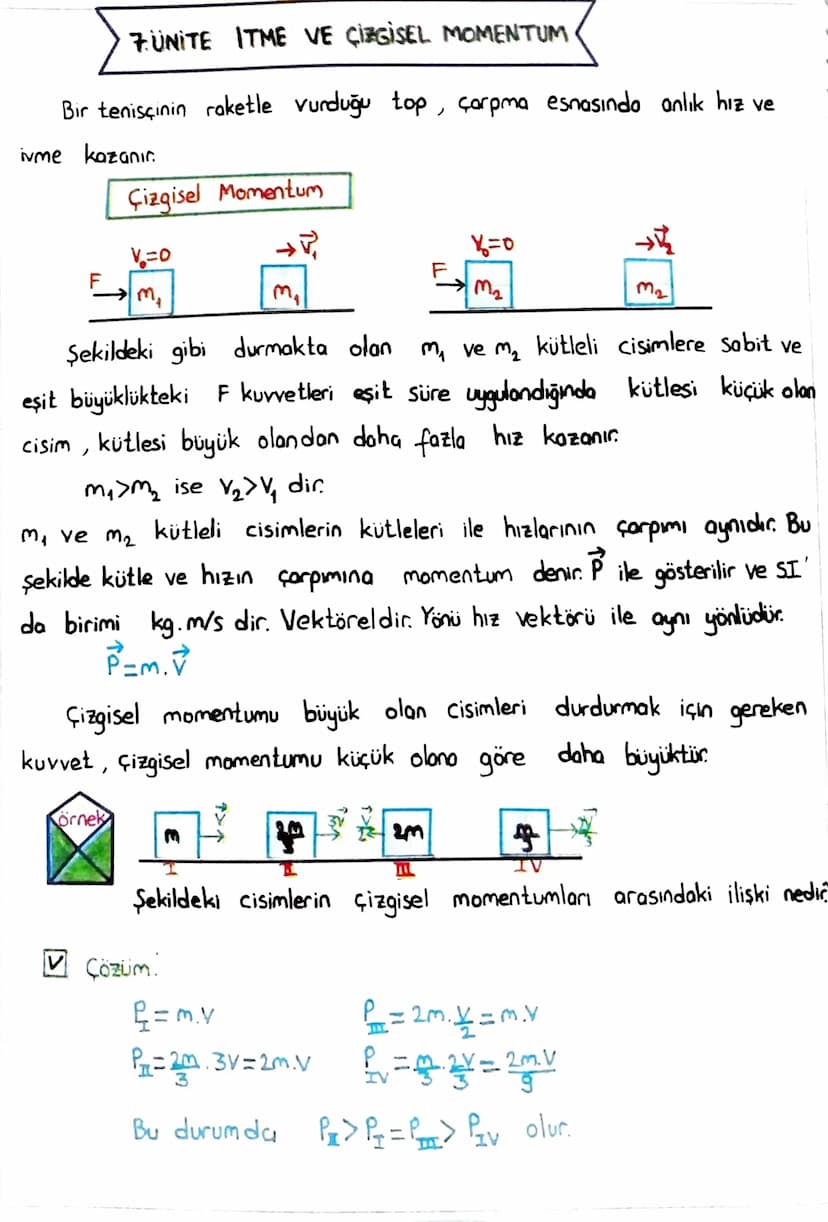 7.ÜNİTE İTME VE ÇİZGİSEL MOMENTUM
Bir tenisçinin raketle vurduğu top, çarpma esnasında anlık hız ve
ivme kazanır.
Çizgisel Momentum
V₀=0 → V⃗₁ V₀=0 → V⃗₂
F → m₁ m₁ F → m₂ m₂
Şekildeki gibi durmakta olan m₁ ve m₂ kütleli cisimlere sabit ve
eşit büyüklükteki F kuvvetleri eşit süre uygulandığında kütlesi küçük olan
cisim, kütlesi büyük olandan daha fazla hız kazanır.
m₁>m₂ ise V₂>V₁ dir.
m₁ ve m₂ kütleli cisimlerin kütleleri ile hızlarının çarpımı aynıdır. Bu
şekilde kütle ve hızın çarpımına momentum denir. P⃗ ile gösterilir ve SI'
da birimi kg.m/s dir. Vektöreldir. Yönü hız vektörü ile aynı yönlüdür.
P⃗=m.V⃗
Çizgisel momentumu büyük olan cisimleri durdurmak için gereken
kuvvet, çizgisel momentumu küçük olana göre daha büyüktür.
örnek m V⃗ 2m/3 3V⃗ V⃗/2 2m m/3 2V⃗/3
I II III IV
Şekildeki cisimlerin çizgisel momentumları arasındaki ilişki nedir?
V Çözüm:
P_I = m.V P_III = 2m.V/2 = m.V
P_II = 2m/3 . 3V = 2m.V P_IV = m/3 . 2V/3 = 2m.V/9
Bu durumda P_II > P_I = P_III > P_IV olur.